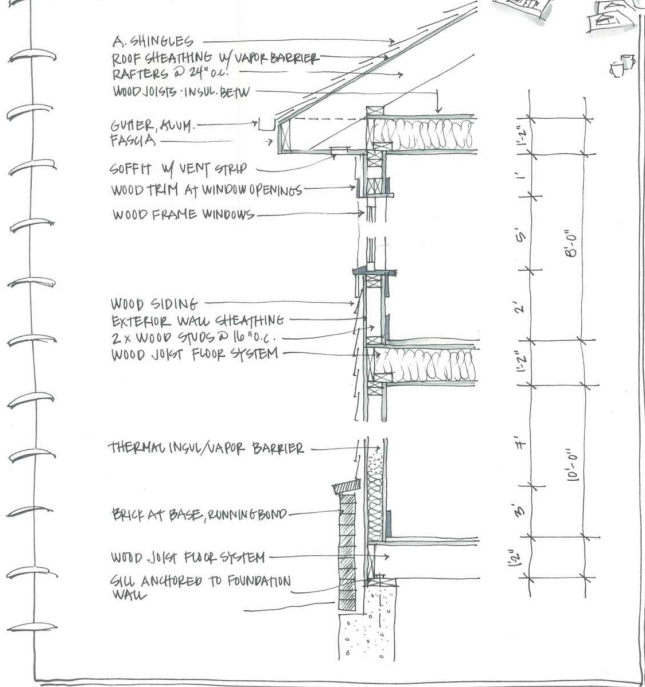 A. SHINGLES
ROOF SHEATHING W/ VAPOR BARRIER
RAFTERS @ 24" O.C.
WOOD JOISTS - INSUL. BETW
GUTTER, ALUM.
FASCIA
SOFFIT W/ VENT STRIP
WOOD TRIM AT WINDOW OPENINGS
WOOD FRAME WINDOWS
WOOD SIDING
EXTERIOR WALL SHEATHING
2 x WOOD STUDS @ 16" O.C.
WOOD JOIST FLOOR SYSTEM
THERMAL INSUL/VAPOR BARRIER
BRICK AT BASE, RUNNING BOND
WOOD JOIST FLOOR SYSTEM
SILL ANCHORED TO FOUNDATION
WALL
1'-2"
1'
5'
8'-0"
2'
1'-2"
7'
10'-0"
3'
1'-2"